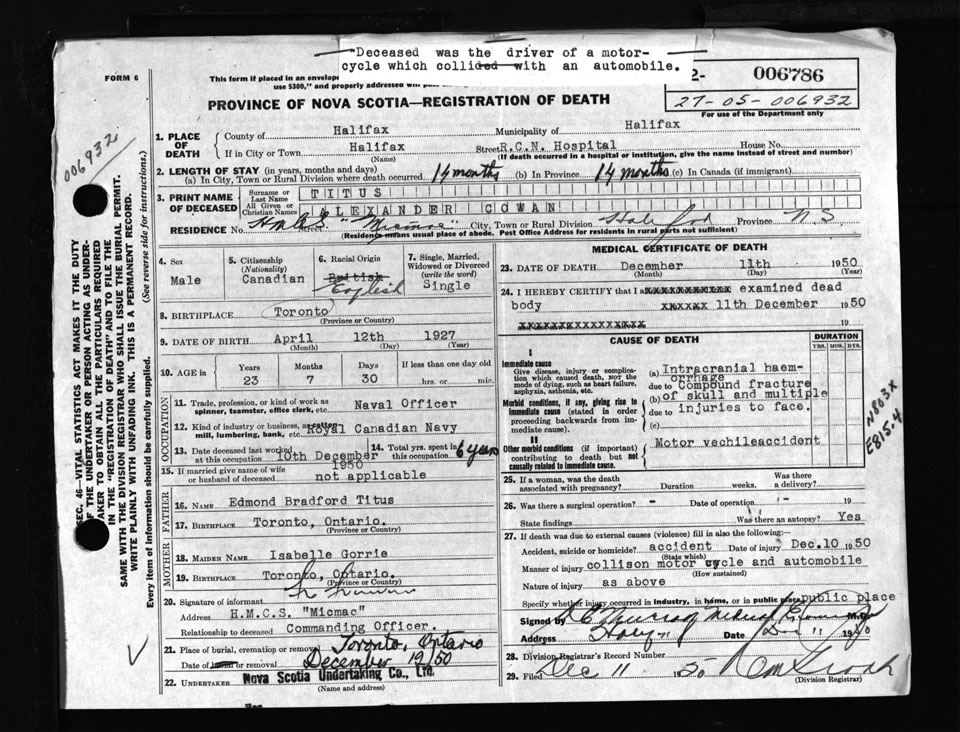 Deceased was the driver of a motor-
cycle which collided with an automobile.
FORM 6
This form if placed in an envelope
use $300," and properly addressed will pass
2- 006786
27-05-006932
For use of the Department only
PROVINCE OF NOVA SCOTIA—REGISTRATION OF DEATH
006932
1. PLACE OF DEATH
County of Halifax Municipality of Halifax
If in City or Town Halifax Street R.C.N. Hospital House No.
(Name) (If death occurred in a hospital or institution, give the name instead of street and number)
2. LENGTH OF STAY (in years, months and days)
(a) In City, Town or Rural Division where death occurred 14 months (b) In Province 14 months (c) In Canada (if immigrant)
3. PRINT NAME OF DECEASED
Surname or Last Name TITUS
All Given or Christian Names ALEXANDER COWAN
RESIDENCE No. H.M.C.S. Street "Micmac" City, Town or Rural Division Halifax Province N.S
(Residence means usual place of abode. Post Office Address for residents in rural parts not sufficient)
4. Sex
Male
5. Citizenship
(Nationality)
Canadian
6. Racial Origin
British
English
7. Single, Married,
Widowed or Divorced
(write the word)
Single
8. BIRTHPLACE Toronto
(Province or Country)
9. DATE OF BIRTH April 12th 1927
(Month) (Day) (Year)
10. AGE in
Years Months Days If less than one day old
23 7 30 hrs. or min.
OCCUPATION
11. Trade, profession, or kind of work as
spinner, teamster, office clerk, etc. Naval Officer
12. Kind of industry or business, as cotton
mill, lumbering, bank, etc. Royal Canadian Navy
13. Date deceased last worked
at this occupation 10th December
1950
14. Total yrs. spent in
this occupation 6 years
15. If married give name of wife
or husband of deceased not applicable
FATHER
16. Name Edmond Bradford Titus
17. Birthplace Toronto, Ontario.
(Province or Country)
MOTHER
18. Maiden Name Isabelle Gorrie
19. Birthplace Toronto, Ontario.
(Province or Country)
20. Signature of informant
Address H.M.C.S. "Micmac"
Relationship to deceased Commanding Officer.
21. Place of burial, cremation or removal Toronto, Ontario
Date of burial or removal December 12/50
22. Undertaker Nova Scotia Undertaking Co., Ltd.
(Name and address)
MEDICAL CERTIFICATE OF DEATH
23. DATE OF DEATH December 11th 1950
(Month) (Day) (Year)
24. I HEREBY CERTIFY that I xxxxxxxxxxxx examined dead
body xxxxxx 11th December 1950
xxxxxxxxxxxxxxxxx 19
CAUSE OF DEATH
DURATION
YRS. MOS. DYS.
I
Immediate cause
Give disease, injury or complica-
tion which caused death, NOT the
mode of dying, such as heart failure,
asphyxia, asthenia, etc.
Morbid conditions, if any, giving rise to
immediate cause (stated in order
proceeding backwards from im-
mediate cause).
II
Other morbid conditions (if important)
contributing to death but not
causally related to immediate cause.
(a) Intracranial haem-
orrhage
due to Compound fracture
(b) of skull and multiple
due to injuries to face.
(c)
Motor vechileaccident
N803X
E815-4
25. If a woman, was the death
associated with pregnancy? Duration weeks. Was there
a delivery?
26. Was there a surgical operation – Date of operation – 19
State findings Was there an autopsy? Yes
27. If death was due to external causes (violence) fill in also the following:—
Accident, suicide or homicide? accident Date of injury Dec.10 1950
(State which)
Manner of injury collison motor cycle and automobile
(How sustained)
Nature of injury as above
Specify whether injury occurred in industry, in home, or in public place public place
Signed by M.D.
Address Date Dec 11 1950
28. Division Registrar's Record Number
29. Filed Dec 11 1950
(Division Registrar)
SEC. 46—VITAL STATISTICS ACT MAKES IT THE DUTY
OF THE UNDERTAKER OR PERSON ACTING AS UNDER-
TAKER TO OBTAIN ALL THE PARTICULARS REQUIRED
IN THE "REGISTRATION OF DEATH" AND TO FILE THE
SAME WITH THE DIVISION REGISTRAR WHO SHALL ISSUE THE BURIAL PERMIT.
WRITE PLAINLY WITH UNFADING INK. THIS IS A PERMANENT RECORD.
Every item of information should be carefully supplied. (See reverse side for instructions.)